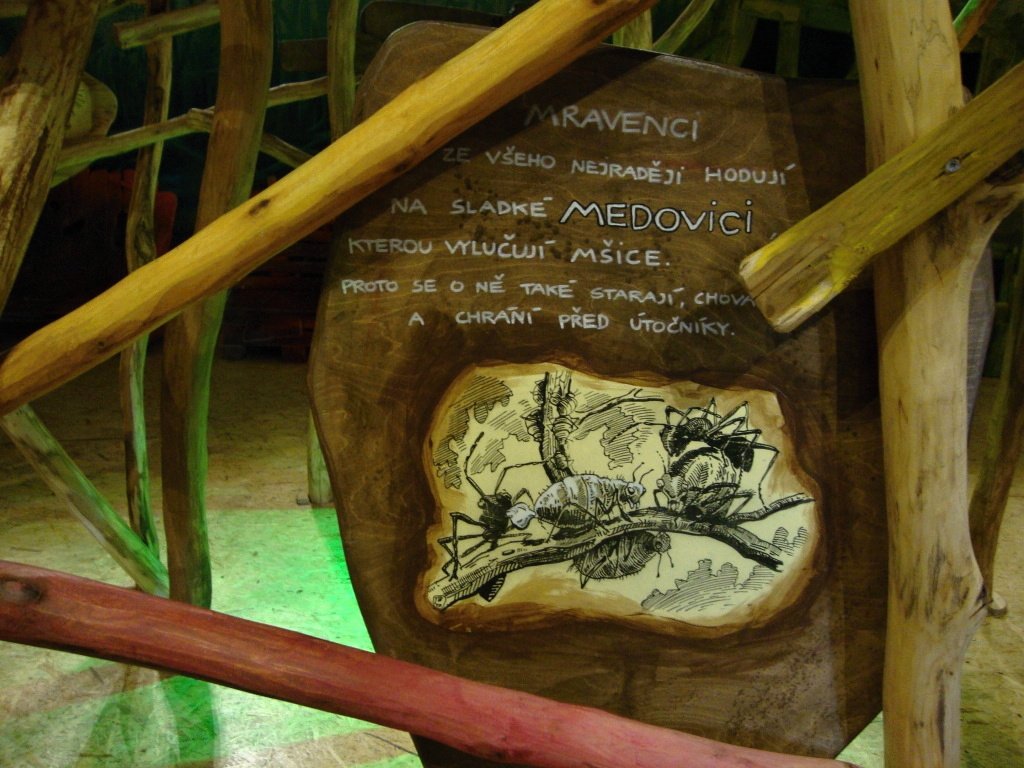 MRAVENCI
ZE VŠEHO NEJRADĚJI HODUJÍ
NA SLADKÉ MEDOVICI,
KTEROU VYLUČUJÍ MŠICE.
PROTO SE O NĚ TAKÉ STARAJÍ, CHOVA
A CHRÁNÍ PŘED ÚTOČNÍKY.